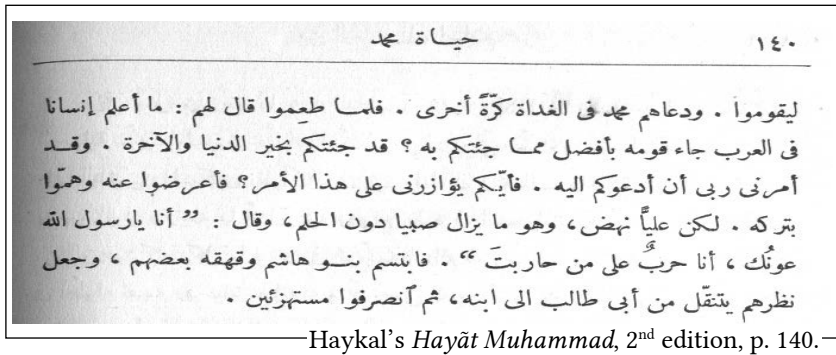 حياة محمد ١٤٠
ليقوموا . ودعاهم محمد فى الغداة كرّةً أخرى . فلما طعِموا قال لهم : ما أعلم إنسانا
فى العرب جاء قومه بأفضل مما جئتكم به ؟ قد جئتكم بخير الدنيا والآخرة . وقد
أمرنى ربى أن أدعوكم اليه . فأيّكم يؤازرنى على هذا الأمر؟ فأعرضوا عنه وهمّوا
بتركه . لكن علياًّ نهض ، وهو ما يزال صبيا دون الحلم ، وقال : ”أنا يارسول الله
عونُك ، أنا حربٌ على من حاربتَ“ . فابتسم بنو هاشم وقهقه بعضهم ، وجعل
نظرهم يتنقّل من أبى طالب الى ابنه ، ثم ٱنصرفوا مستهزئين .
Haykal’s Hayãt Muhammad, 2nd edition, p. 140.